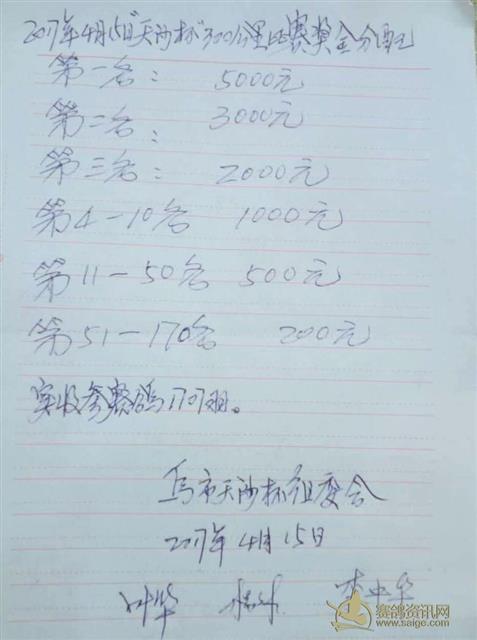 2017年4月15日"天鸿杯"300公里比赛奖金分配
第一名: 5000元
第二名: 3000元
第三名: 2000元
第4-10名 1000元
第11-50名 500元
第51-170名 200元
实收参赛鸽1707羽。
乌市天鸿杯组委会
2017年4月15日
叶华 李中华
赛鸽资讯网
www.saige.com